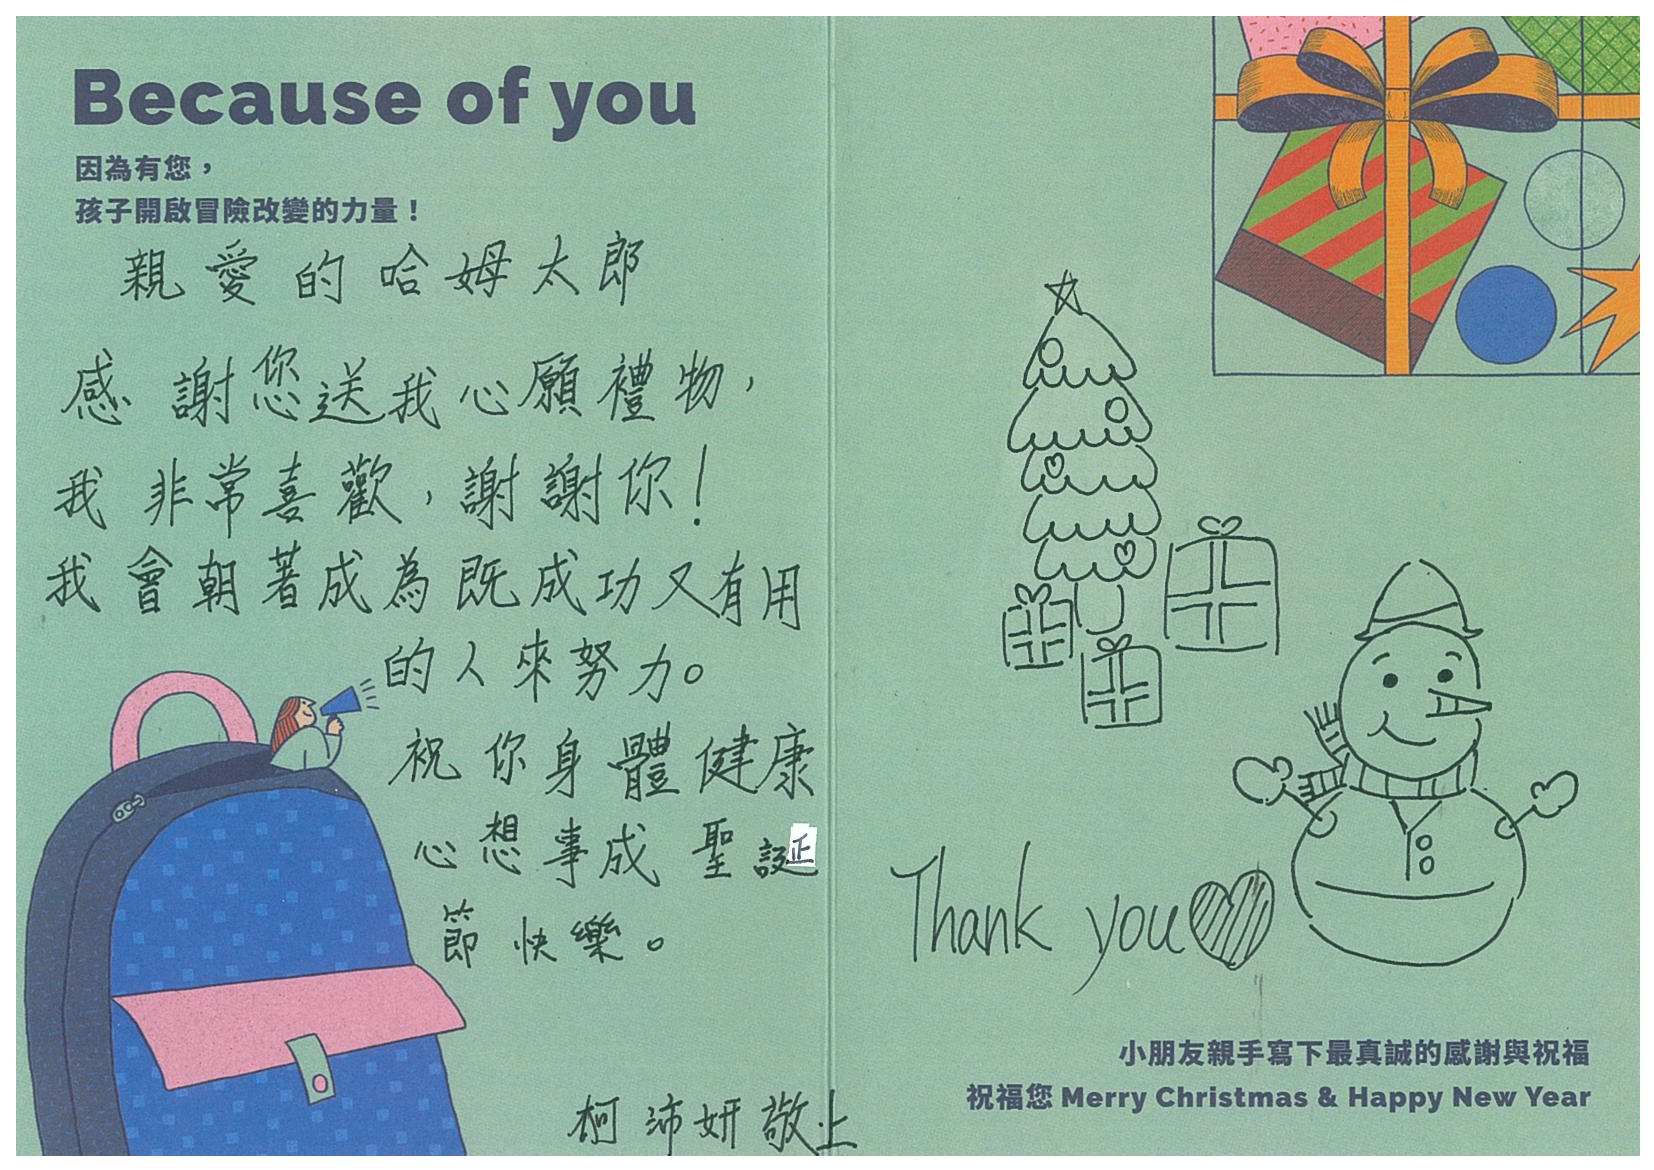 Because of you
因為有您，
孩子開啟冒險改變的力量！
親愛的哈姆太郎
感謝您送我心願禮物，
我非常喜歡，謝謝你！
我會朝著成為既成功又有用
的人來努力。
祝你身體健康
心想事成 聖誕
節快樂。
柯沛妍敬上
Thank you
小朋友親手寫下最真誠的感謝與祝福
祝福您 Merry Christmas & Happy New Year